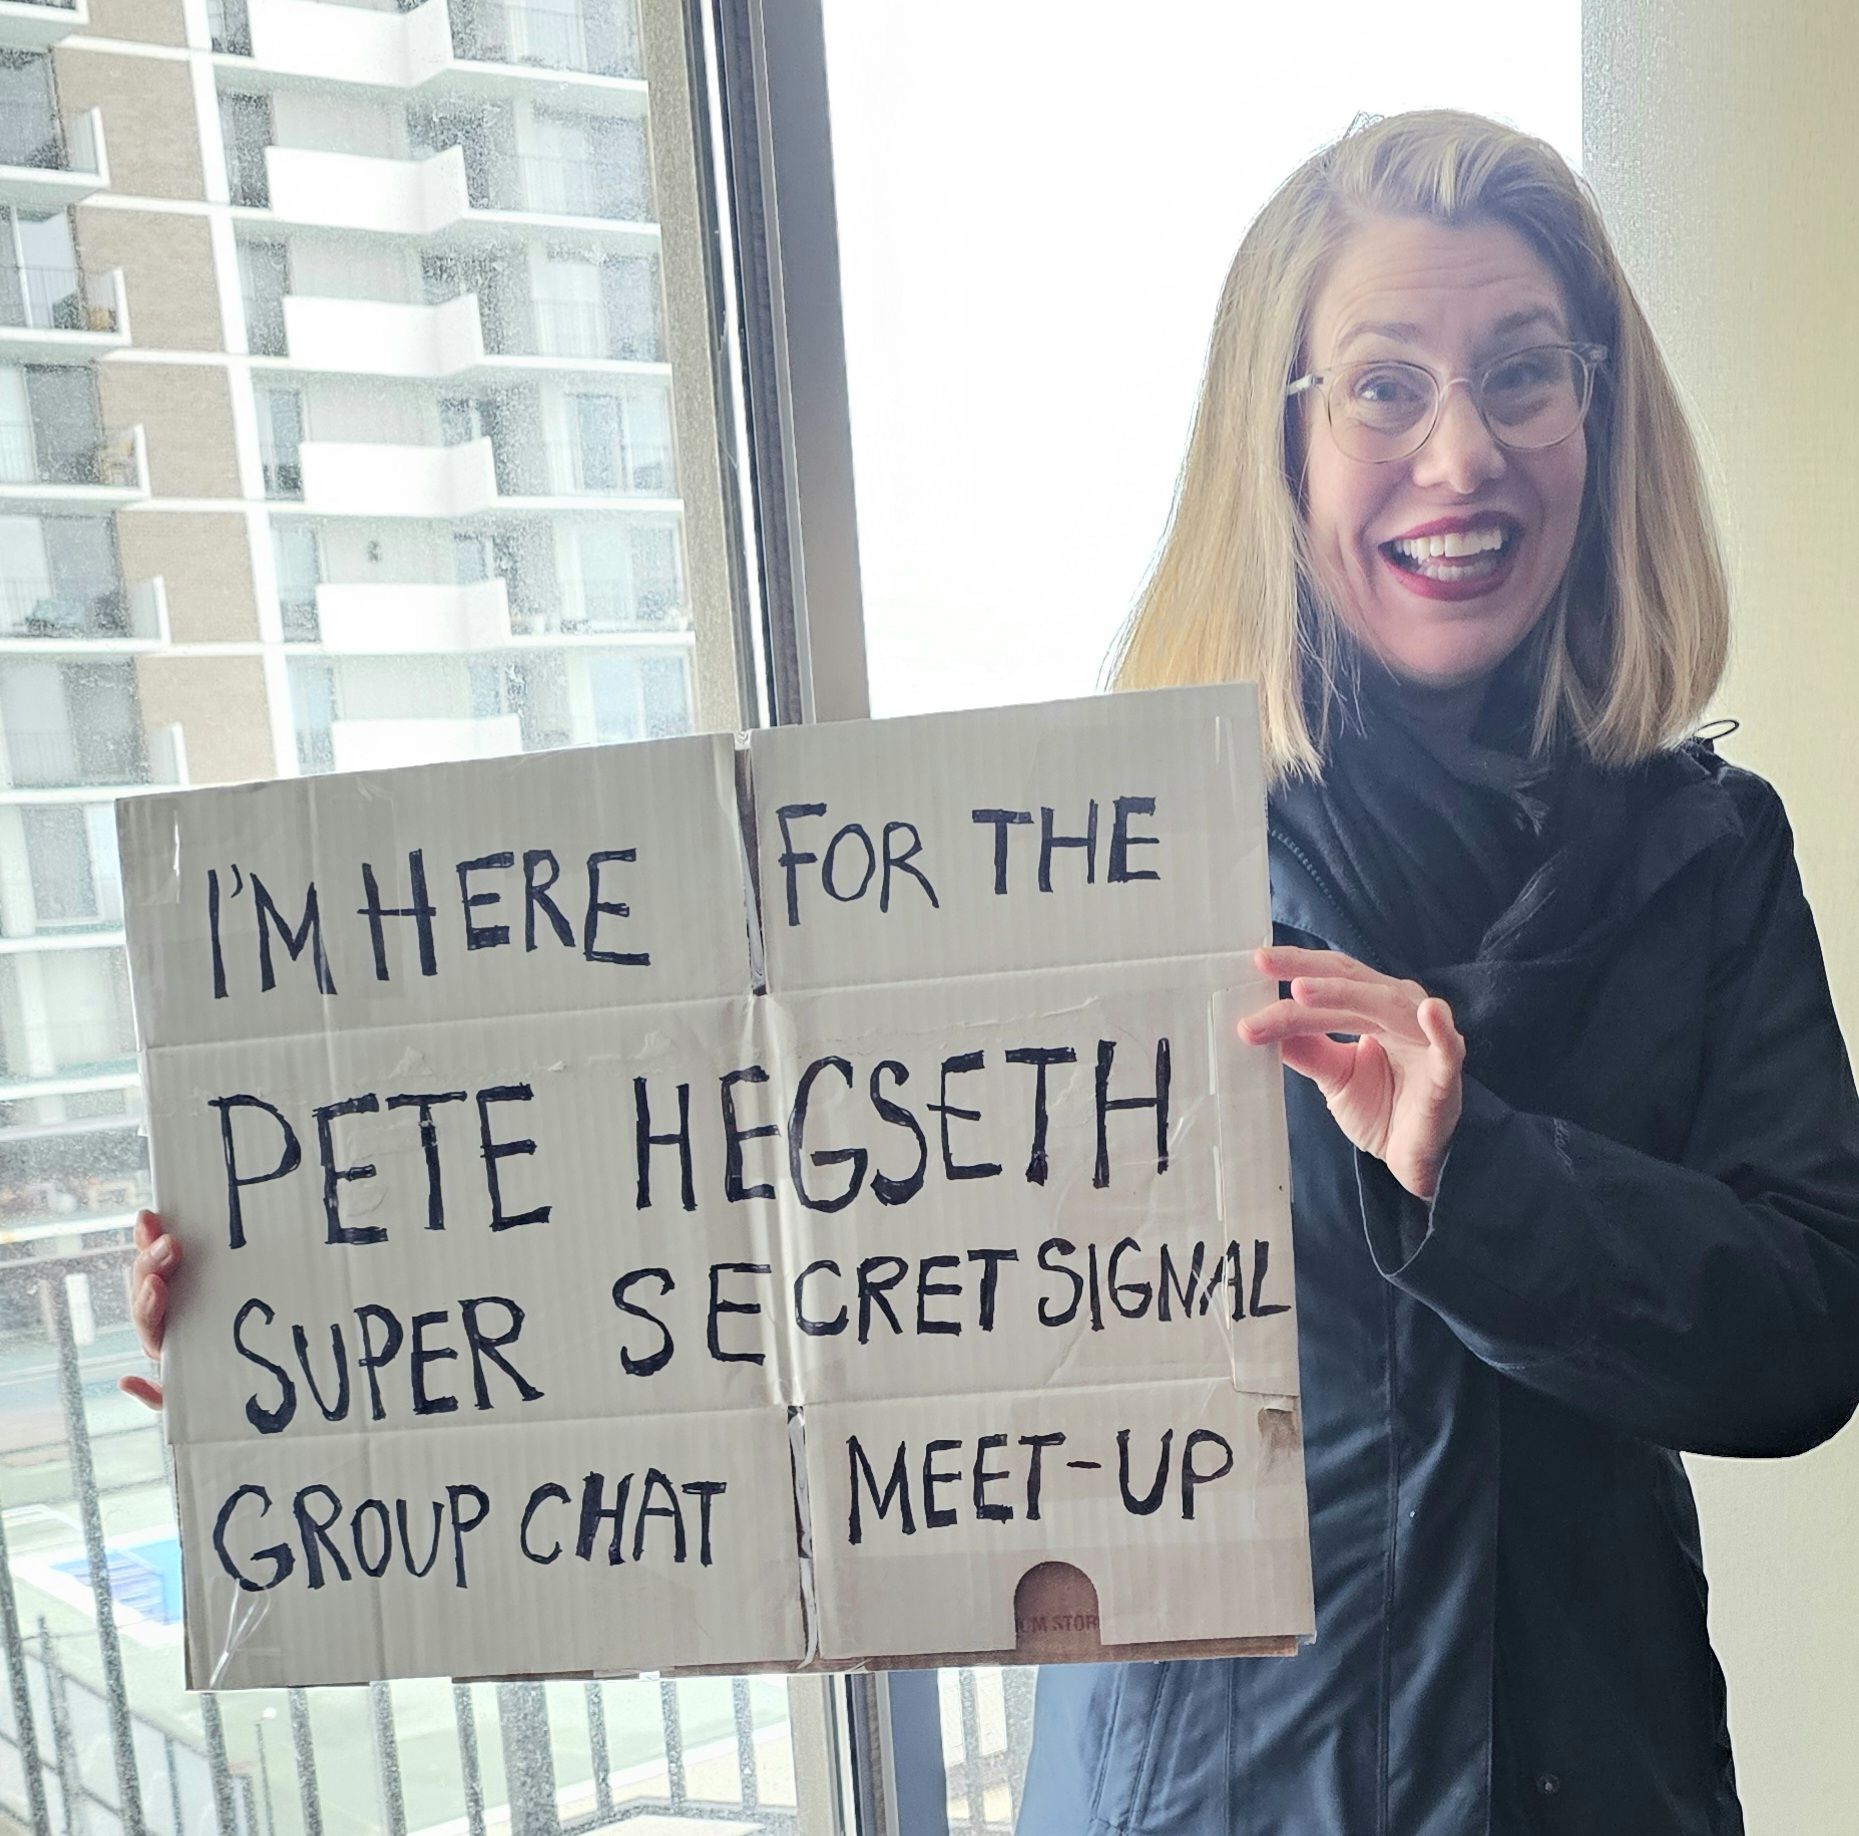 I'M HERE FOR THE
PETE HEGSETH
SUPER SECRET SIGNAL
GROUP CHAT MEET-UP
UM STOR